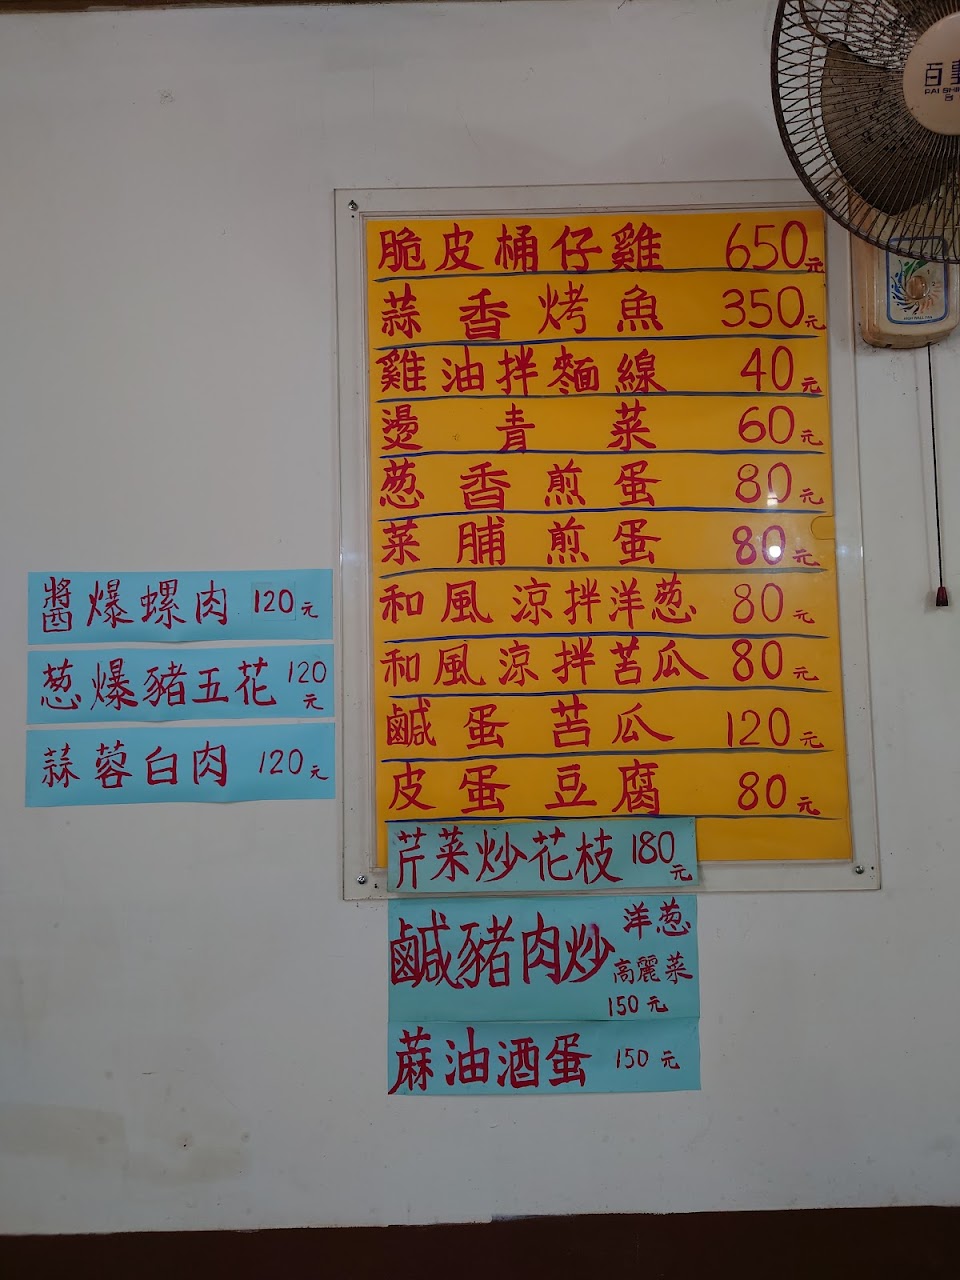 脆皮桶仔雞 650元
蒜香烤魚 350元
雞油拌麵線 40元
燙青菜 60元
葱香煎蛋 80元
菜脯煎蛋 80元
和風涼拌洋葱 80元
和風涼拌苦瓜 80元
鹹蛋苦瓜 120元
皮蛋豆腐 80元
芹菜炒花枝 180元
鹹豬肉炒 洋葱
高麗菜
150元
蔴油酒蛋 150元
醬爆螺肉 120元
葱爆豬五花 120元
蒜蓉白肉 120元
百